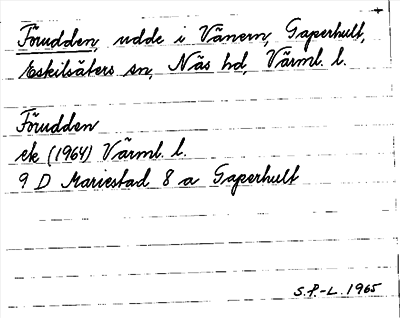 Förudden, udde i Vänern, Gaperhult,
Eskilsäters sn, Näs hd, Värml. l.
Förudden
ek (1964) Värml. l.
9 D Mariestad 8 a Gaperhult
S.P.-L. 1965